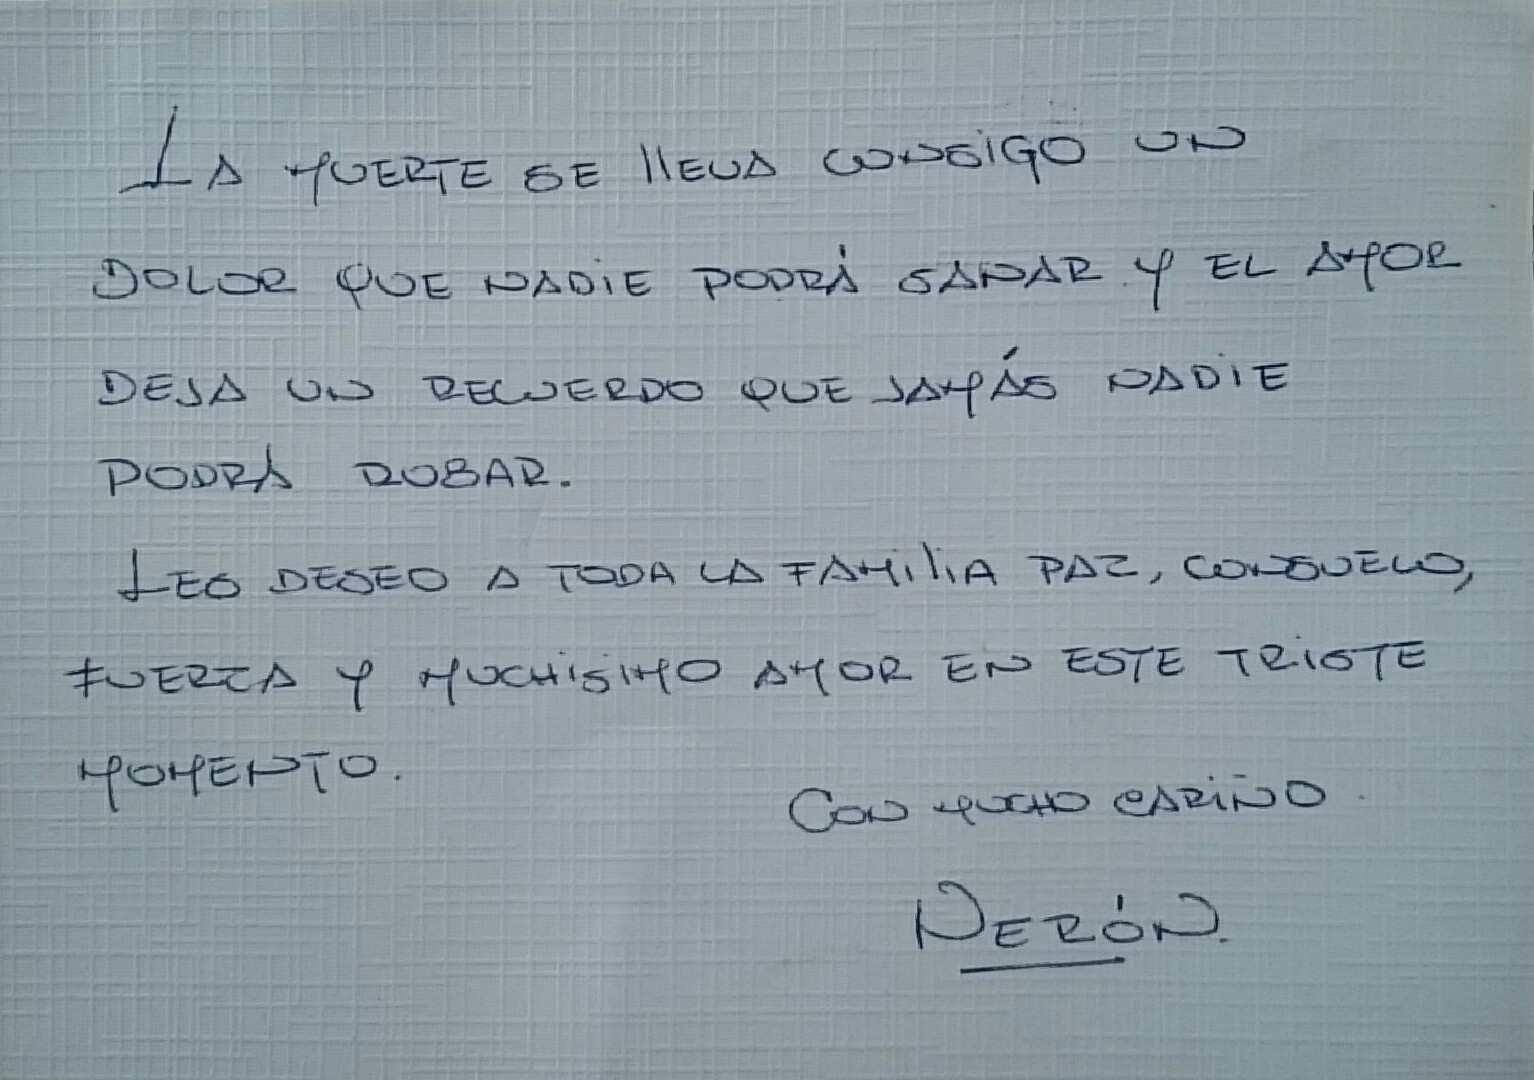 LA MUERTE SE llEVA CONSIGO UN
DOLOR QUE NADiE PODRÁ SANAR Y EL AMOR
DEJA UN RECUERDO QUE JAMÁS NADiE
PODRÁ ROBAR.
LES DESEO A TODA LA FAMiliA PAZ, CONSUELO,
FUERZA Y MUCHÍSIMO AMOR EN ESTE TRiSTE
MOMENTO.
CON MUCHO CARiÑO.
NERÓN.